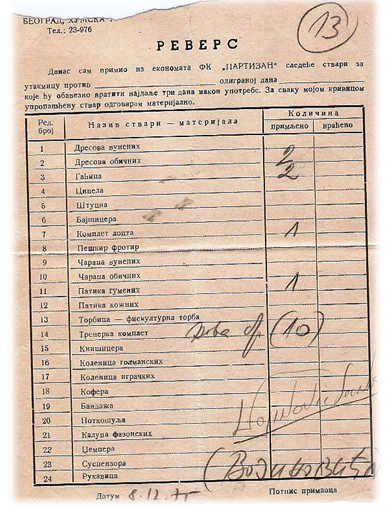 БЕОГРАД, ХУМСКА
Тел.: 23-976
13
РЕВЕРС
Данас сам примио из економата ФК „ПАРТИЗАН" следеће ствари за
утакмицу против одиграној дана
које ћу обавезно вратити најдаље три дана након употребе. За сваку мојом кривицом
упропашћену ствар одговарам материјално.
Ред. број Назив ствари — материјала Количина
примљено враћено
1 Дресова вунених
2 Дресова обичних 2
3 Гаћица 2
4 Ципела
5 Штуцна
6 Бајцпера
7 Комплет лопта 1
8 Пешкир фротир
9 Чарапа вунених
10 Чарапа обичних 1
11 Патика гумених
12 Патика кожних
13 Торбица — фискултурна торба
14 Тренерка комплет (10)
15 Книшицера
16 Коленица голманских
17 Коленица играчких
18 Кофера
19 Бандажа
20 Поткошуља
21 Капута фазонских
22 Џемпера
23 Суспензора
24 Рукавица
Датум 8.12.75 Потпис примаоца